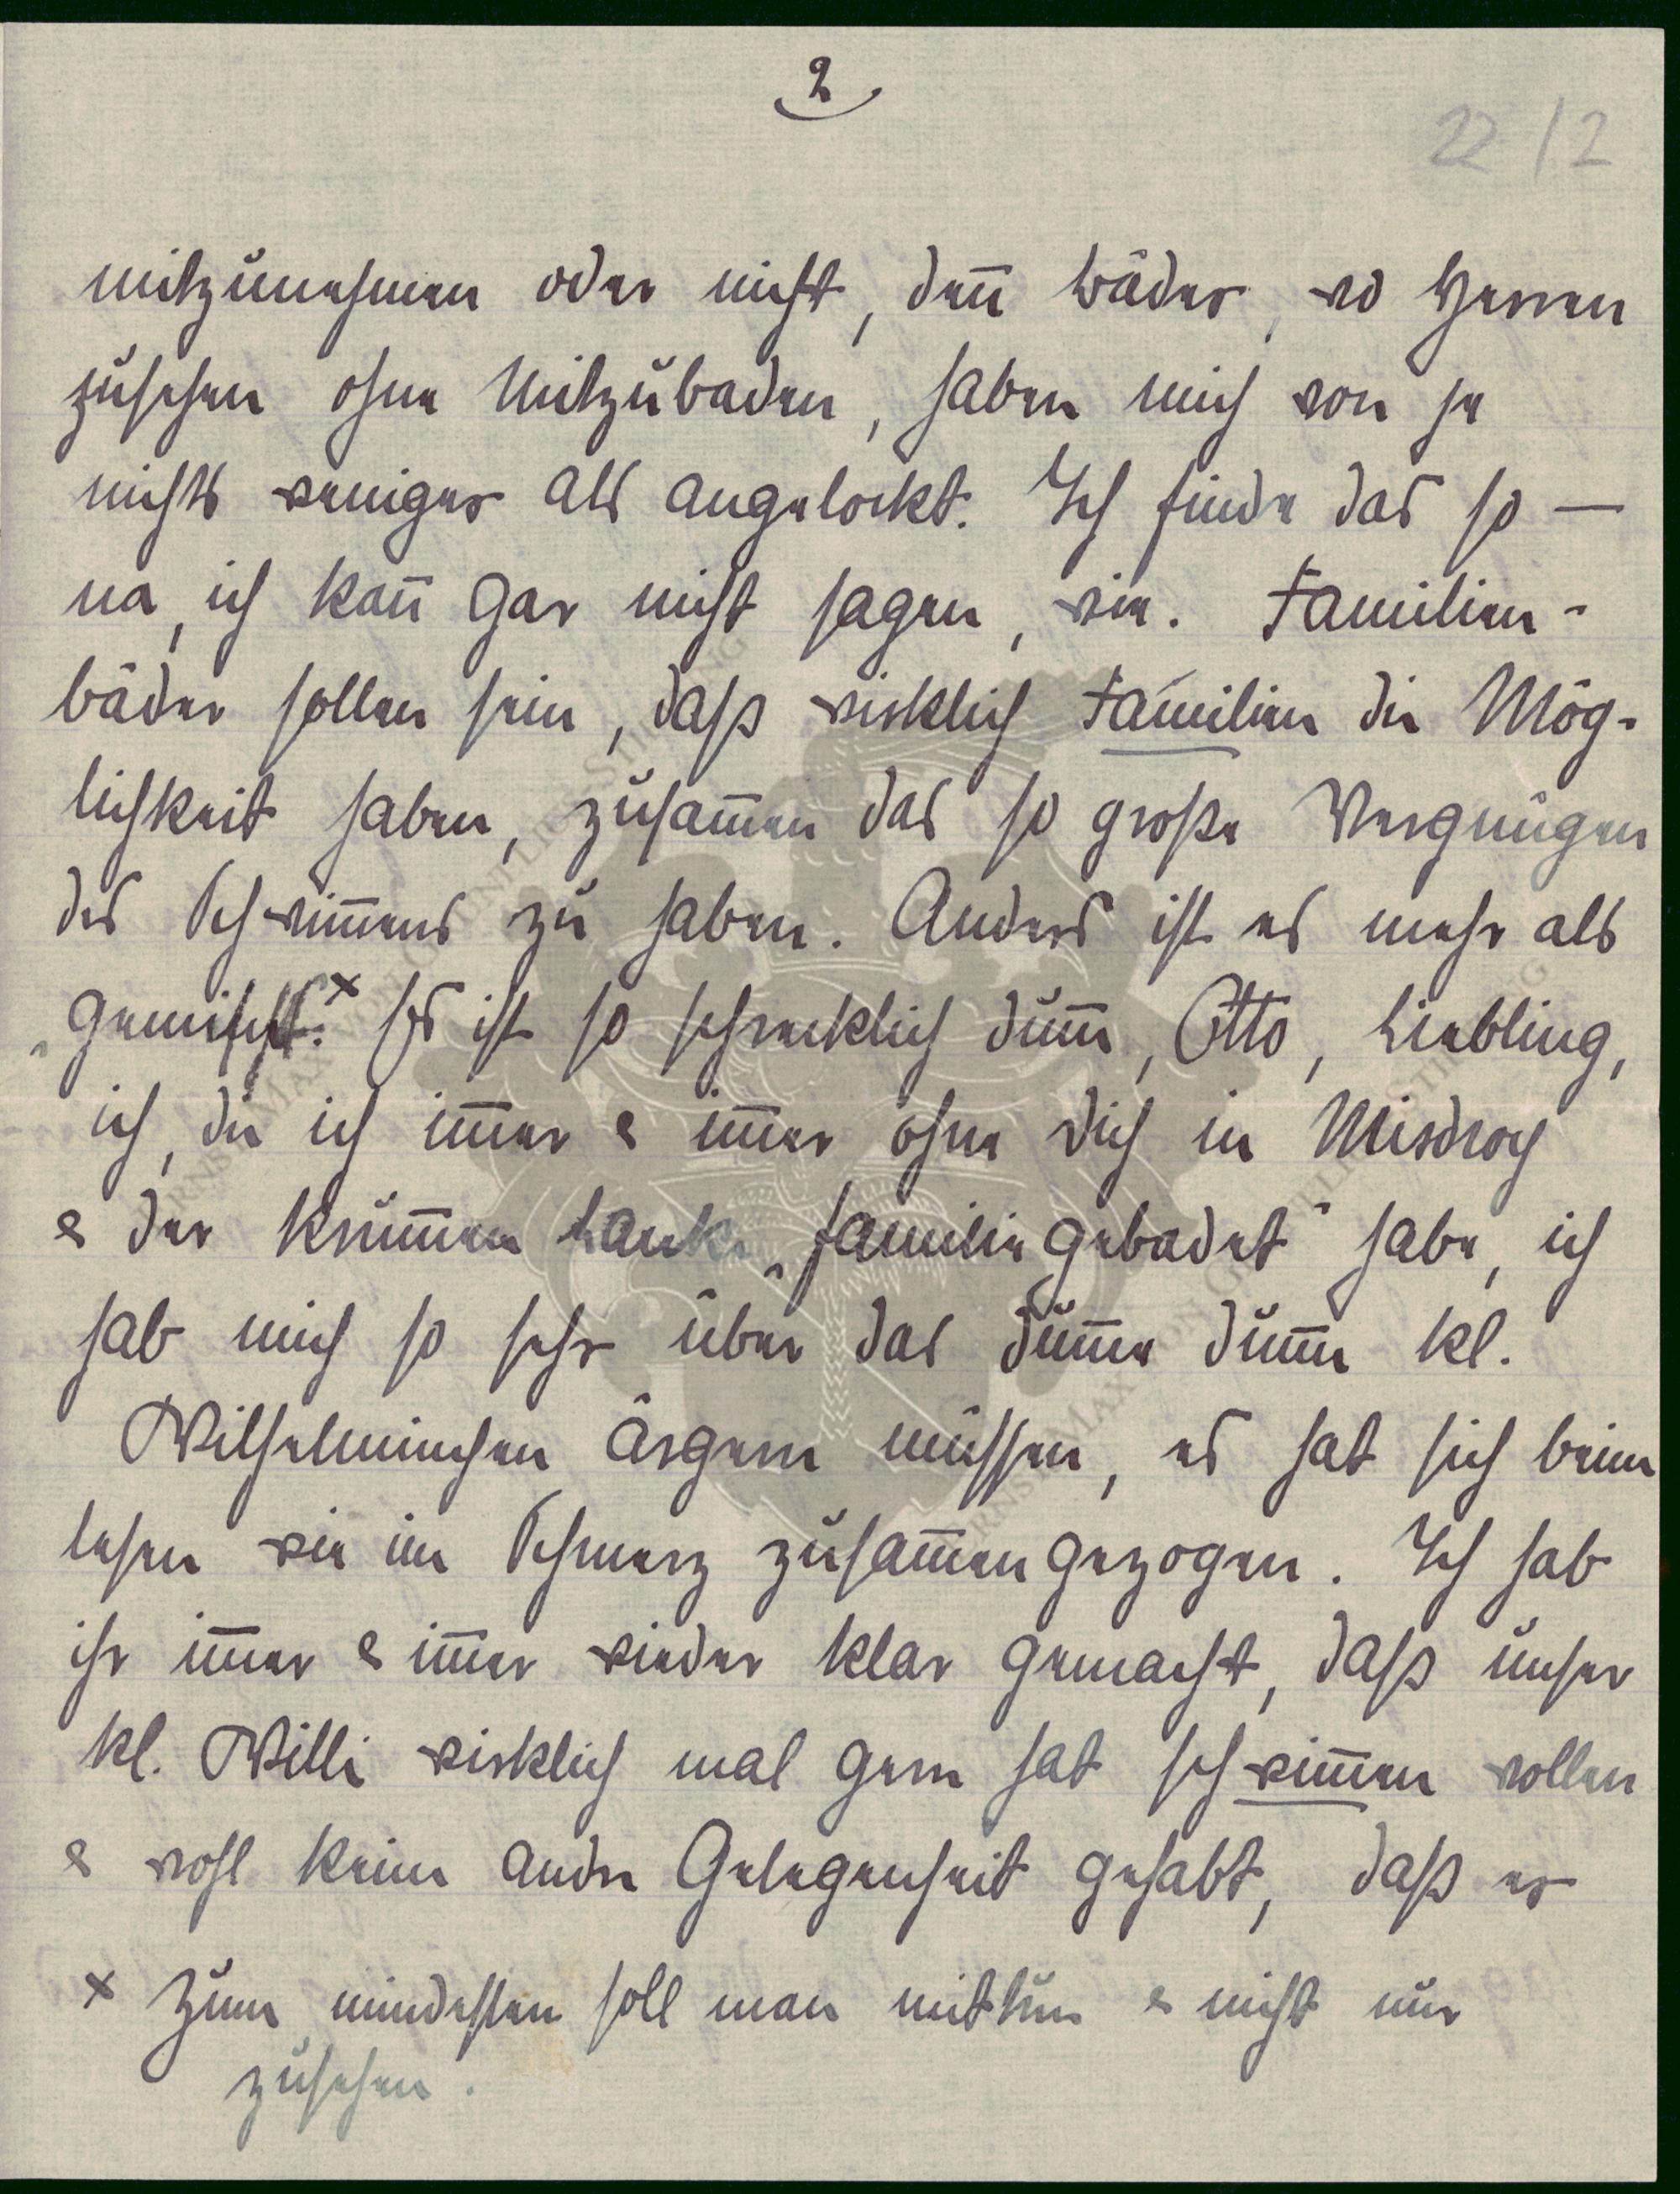 2
22/2
mitzunehmen oder nicht, den̄ Bäder, wo Herren
zusehen ohne Mitzubaden, haben mich von je
nichts weniger als angelockt. Ich finde das so —
na, ich kan̄ gar nicht sagen, wie. Familien-
bäder sollen sein, daß wirklich Familien die Mög-
lichkeit haben, zusam̄en das so große Vergnügen
des Schwim̄ens zu haben. Anders ist es mehr als
„gemischt.“ x Es ist so schrecklich dum̄, Otto, Liebling,
ich, die ich im̄er & im̄er ohne Dich in Misdroy
& der Krum̄en Lanke „familiegebadet“ habe, ich
hab mich so sehr über das dum̄e dum̄e kl.
Wilhelminchen ärgern müssen, es hat sich beim
lesen wie im Schmerz zusam̄engezogen. Ich hab
ihr im̄er & im̄er wieder klar gemacht, daß unser
kl. Willi wirklich mal gern hat schwim̄en wollen
& wohl keine andre Gelegenheit gehabt, daß er
x Zum mindesten soll man mittun & nicht nur
zusehen.
ERNST MAX VON GRUNELIUS-STIFTUNG